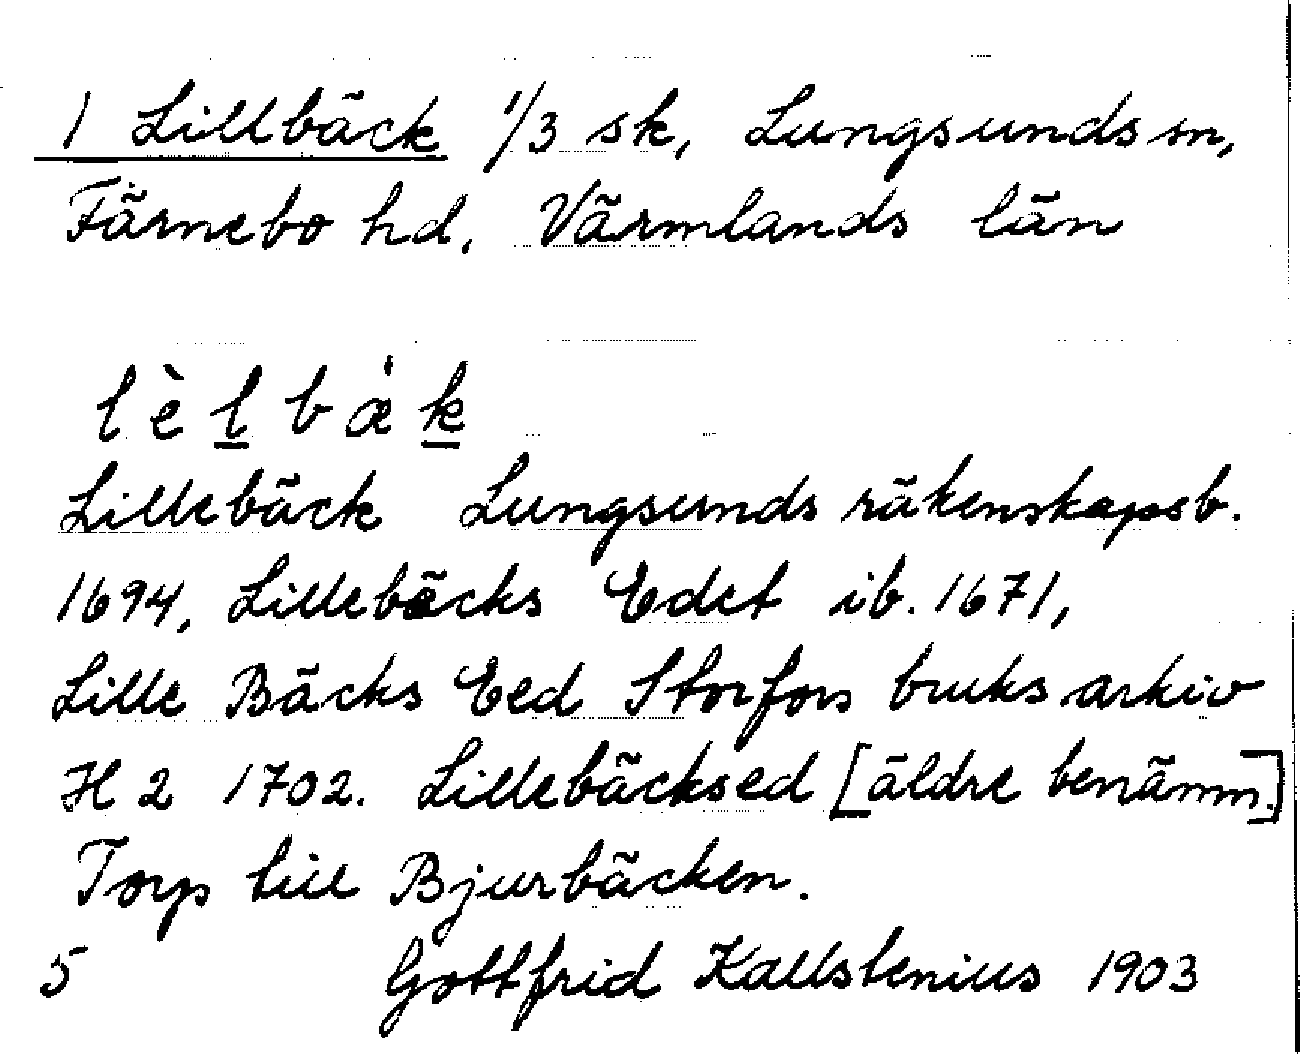 1 Lillbäck 1/3 sk, Lungsunds sn,
Färnebo hd. Värmlands län
l è l b ǽ k
Lillebäck Lungsunds räkenskapsb.
1694, Lillebäcks Edet ib. 1671,
Lille Bäcks Eed Storfors bruks arkiv
H 2 1702. Lillebäcksed [äldre benämn.]
Torp till Bjurbäcken.
5 Gottfrid Kallstenius 1903